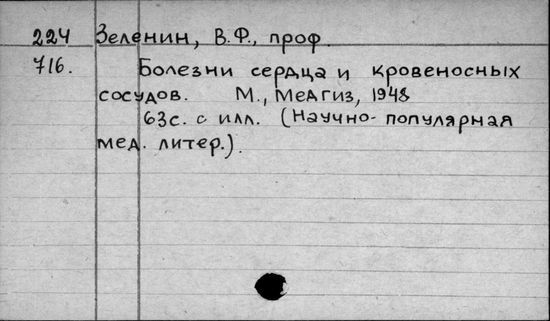 224 Зеленин, В.Ф., проф.
716. Болезни сердца и кровеносных
сосудов. М., Медгиз, 1948
63с. с илл. (Научно-популярная
мед. литер.).